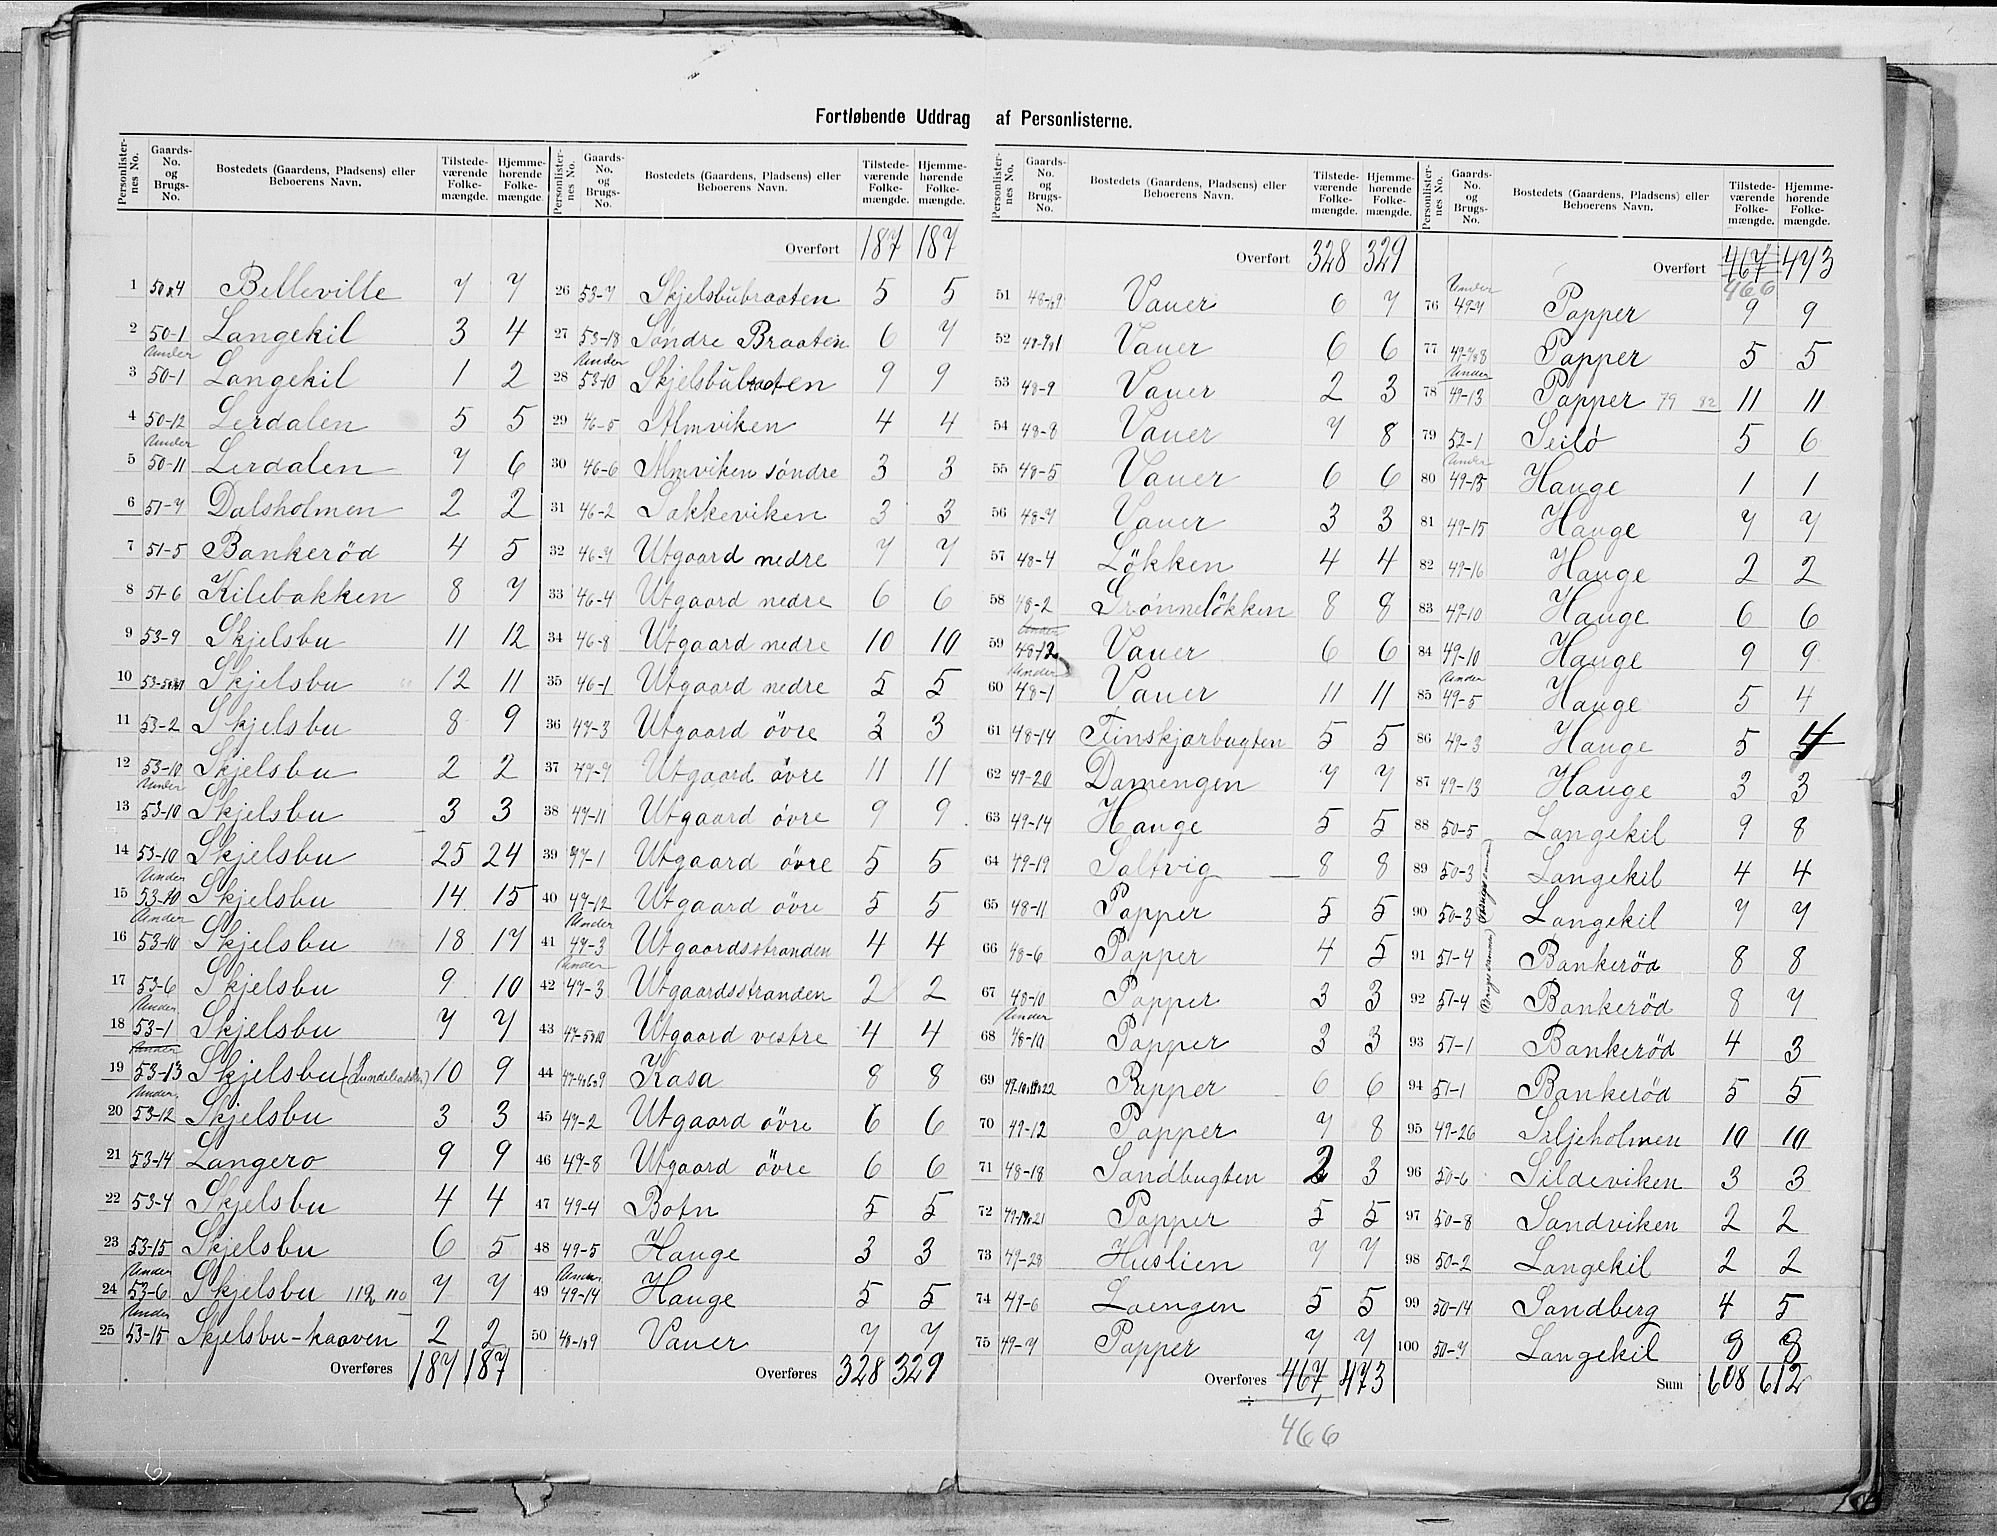 Fortløbende Uddrag af Personlisterne.
Personlister-nes No. | Gaards-No. og Brugs-No. | Bostedets (Gaardens, Pladsens) eller Beboerens Navn. | Tilstede-værende Folke-mængde. | Hjemme-hørende Folke-mængde.
1 50-4 Belleville 7 7
2 50-1 Langekil 3 4
3 Under 50-1 Langekil 1 2
4 50-12 Lerdalen 5 5
5 Under 50-11 Lerdalen 7 6
6 51-7 Dalsholmen 2 2
7 51-5 Bankerød 4 5
8 51-6 Kilebakken 8 7
9 53-9 Skjelsbu 11 12
10 Skjelsbu 12 11
11 53-2 Skjelsbu 8 9
12 53-10 Skjelsbu 2 2
13 Under 53-10 Skjelsbu 3 3
14 53-10 Skjelsbu 25 24
15 Under 53-10 Skjelsbu 14 15
16 Under 53-10 Skjelsbu 18 17
17 53-6 Skjelsbu 9 10
18 Under 53-1 Skjelsbu 7 7
19 Under 53-13 Skjelsbu 10 9
20 Under 53-12 Skjelsbu 3 3
21 53-14 Langerø 9 9
22 53-4 Skjelsbu 4 4
23 53-15 Skjelsbu 6 5
24 Under 53-6 Skjelsbu 112 110 7 7
25 Under 53-15 Skjelsbu-haaven 2 2
Overføres 187 187
Personlister-nes No. | Gaards-No. og Brugs-No. | Bostedets (Gaardens, Pladsens) eller Beboerens Navn. | Tilstede-værende Folke-mængde. | Hjemme-hørende Folke-mængde.
Overført 187 187
26 53-7 Skjelsbubraaten 5 5
27 53-18 Søndre Braaten 6 7
28 Under 53-10 Skjelsbubraaten 9 9
29 46-5 Almviken 4 4
30 46-6 Almviken søndre 3 3
31 46-2 Sakkeviken 3 3
32 46-7 Utgaard nedre 7 7
33 46-4 Utgaard nedre 6 6
34 46-8 Utgaard nedre 10 10
35 46-1 Utgaard nedre 5 5
36 47-3 Utgaard øvre 3 3
37 47-9 Utgaard øvre 11 11
38 47-11 Utgaard øvre 9 9
39 47-1 Utgaard øvre 5 5
40 47-12 Utgaard øvre 5 5
41 Under 47-3 Utgaardsstranden 4 4
42 Under 47-3 Utgaardsstranden 2 2
43 47-5&10 Utgaard vestre 4 4
44 Kasa 8 8
45 47-2 Utgaard øvre 6 6
46 47-8 Utgaard øvre 6 6
47 49-4 Botn 5 5
48 49-5 Hauge 3 3
49 Under 49-14 Hauge 5 5
50 Vauer 7 7
Overføres 328 329
Personlister-nes No. | Gaards-No. og Brugs-No. | Bostedets (Gaardens, Pladsens) eller Beboerens Navn. | Tilstede-værende Folke-mængde. | Hjemme-hørende Folke-mængde.
Overført 328 329
51 Vauer 6 7
52 Vauer 6 6
53 48-9 Vauer 2 3
54 48-8 Vauer 7 8
55 48-5 Vauer 6 6
56 48-7 Vauer 3 3
57 48-4 Løkken 4 4
58 48-2 Grønneløkken 8 8
59 Under 48-12 Vauer 6 6
60 Under 48-1 Vauer 11 11
61 48-14 Finskjarbugten 5 5
62 49-20 Damengen 7 7
63 49-14 Hauge 5 5
64 49-19 Saltvig 8 8
65 48-11 Papper 5 5
66 48-6 Papper 4 5
67 48-10 Papper 3 3
68 Under 48-10 Papper 3 3
69 Papper 6 6
70 49-12 Papper 7 8
71 48-18 Sandbugten 2 3
72 Papper 5 5
73 49-28 Huslien 7 7
74 49-6 Laengen 5 5
75 49-7 Papper 7 7
Overføres 467 473
466
Personlister-nes No. | Gaards-No. og Brugs-No. | Bostedets (Gaardens, Pladsens) eller Beboerens Navn. | Tilstede-værende Folke-mængde. | Hjemme-hørende Folke-mængde.
Overført 467 473
466
76 Under 49-7 Papper 9 9
77 49-7&8 Papper 5 5
78 Under 49-13 Papper 79 82 11 11
79 52-1 Seilø 5 6
80 Under 49-15 Hauge 1 1
81 49-15 Hauge 7 7
82 49-16 Hauge 2 2
83 49-10 Hauge 6 6
84 49-10 Hauge 9 9
85 Under 49-5 Hauge 5 4
86 49-3 Hauge 5 4
87 49-13 Hauge 3 3
88 50-5 Langekil 9 8
89 50-3 Langekil 4 4
90 50-3 Langekil 7 7
91 51-4 Bankerød 8 8
92 51-4 Bankerød 8 7
93 51-1 Bankerød 4 3
94 51-1 Bankerød 5 5
95 49-26 Seljeholmen 10 10
96 50-6 Sildeviken 3 3
97 50-8 Sandviken 2 2
98 50-2 Langekil 2 2
99 50-14 Sandberg 4 5
100 50-7 Langekil 8 8
Sum 608 612